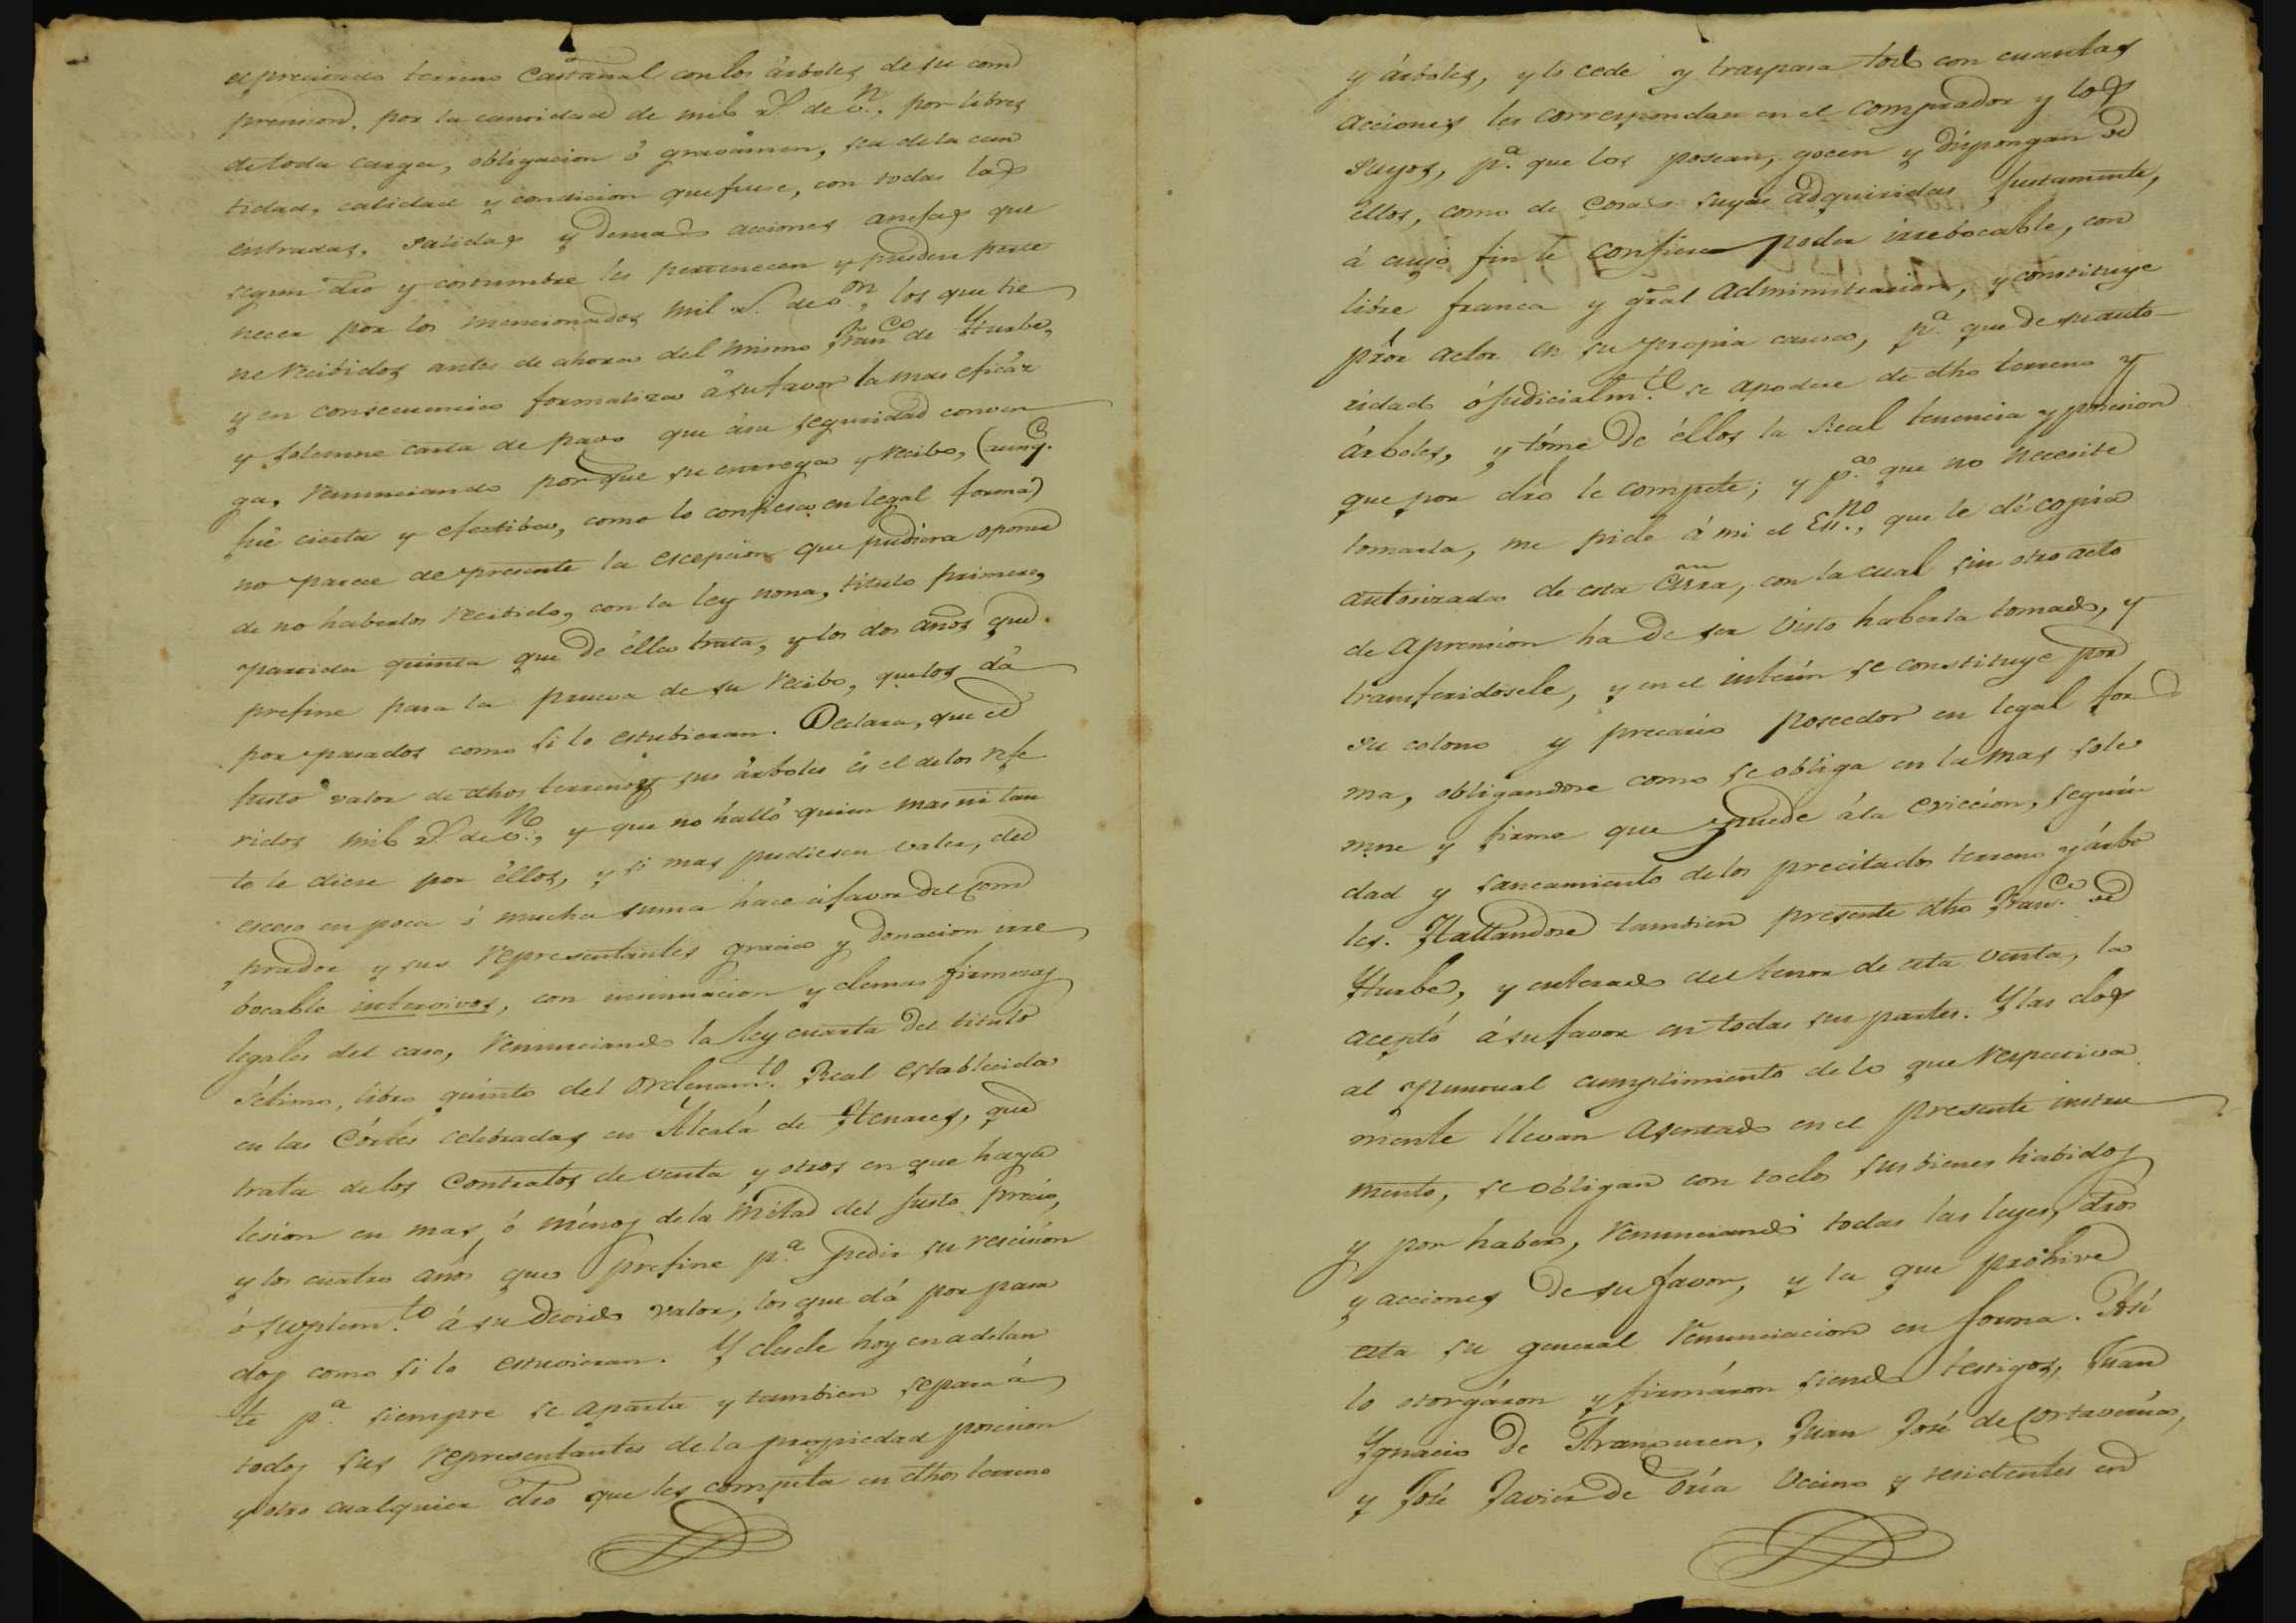 el precitado terreno Castañal con los árboles de su com
prension, por la cantidad de mil rs. de v.n, por libres
de toda carga, obligacion ó gravámen, sea de la can
tidad, calidad y condicion que fuese, con todas las
entradas, salidas y demas acciones anejas que
segun dro y costumbre les pertenecen y pueden perte
necer por los mencionados mil rs. de v.on, los que tie
ne recibidos antes de ahora del mismo Fran.co de Yturbe,
y en consecuencia formaliza á su favor la mas eficáz
y solemne carta de pago que á su seguridad conven
ga, renunciando porque su entrega y recibo, (aunq.e
fué cierta y efectiba, como lo confiesa en legal forma)
no parece de presente la escepcion que pudiera oponer
de no haberlos recibido, con la ley nona, titulo primero,
partida quinta que de élla trata, y los dos años que
prefine para la prueva de su recibo, que los dá
por pasados como si lo estubieran. Declara, que el
justo valor de dhos terreno y sus árboles és el de los refe
ridos mil rs. de v.n, y que no halló quien mas ni tan
to le diese por éllos, y si mas pudiesen valer, del
esceso en poca ó mucha suma hace á favor del Com
prador y sus representantes gracia y donacion irre
bocable intervivos, con insinuacion y demas firmezas
legales del caso, renunciando la ley cuarta del titulo
sétimo, libro quinto del Ordenam.to Real establecida
en las Córtes celebradas en Alcalá de Henares, que
trata de los Contratos de venta y otros en que haya
lesion en mas ó ménos de la mitad del justo precio,
y los cuatro años que prefine p.a pedir su rescision
ó suplem.to á su devido valor, los que dá por pasa
dos como si lo estuvieran. Y desde hoy en adelan
te p.a siempre se aparta y tambien separa á
todos sus representantes de la propiedad posesion
y otro cualquier dro que les competa en dhos terreno
y árboles, y lo cede y traspasa todo con cuantas
acciones les correspondan en el comprador y los
suyos, p.a que los posean, gocen y dispongan de
éllos, como de cosas suyas adquiridas justamente,
á cuyo fin le confiere poder irrebocable, con
libre franca y gral administracion, y constituye
prôr actor en su propia causa, p.a que de su auto-
ridad ó judicialm.te se apodere de dho terreno y
árboles, y tóme de éllos la Real tenencia y posesion
que por dro le compete; y p.a que no necesite
tomarla, me pide á mi el Es.no, que le dé copia
autorizada de esta Esra, con la cual sin otro acto
de aprension ha de ser visto haberla tomado, y
transferidosele, y en el interin se constituye por
su colono y precario poseedor en legal for
ma, obligandose como se obliga en la mas sole
mne y firme que puede á la eviccion, seguri
dad y saneamiento de los precitados terreno y árbo
les. Hallandose tambien presente dho Fran.co de
Yturbe, y enterado del tenor de esta venta, la
aceptó á su favor en todas sus partes. Y las dos
al puntual cumplimiento de lo que respectiva
mente llevan asentado en el presente instru
mento, se obligan con todos sus bienes habidos
y por haber, renunciando todas las leyes, dros
y acciones de su favor, y la que prohive
esta su general renunciacion en forma. Asi
lo otorgáron y firmáron siendo testigos, Juan
Ygnacio de Aranguren, Juan José de Cortaverria,
y José Javier de Oria Vecino y residentes en